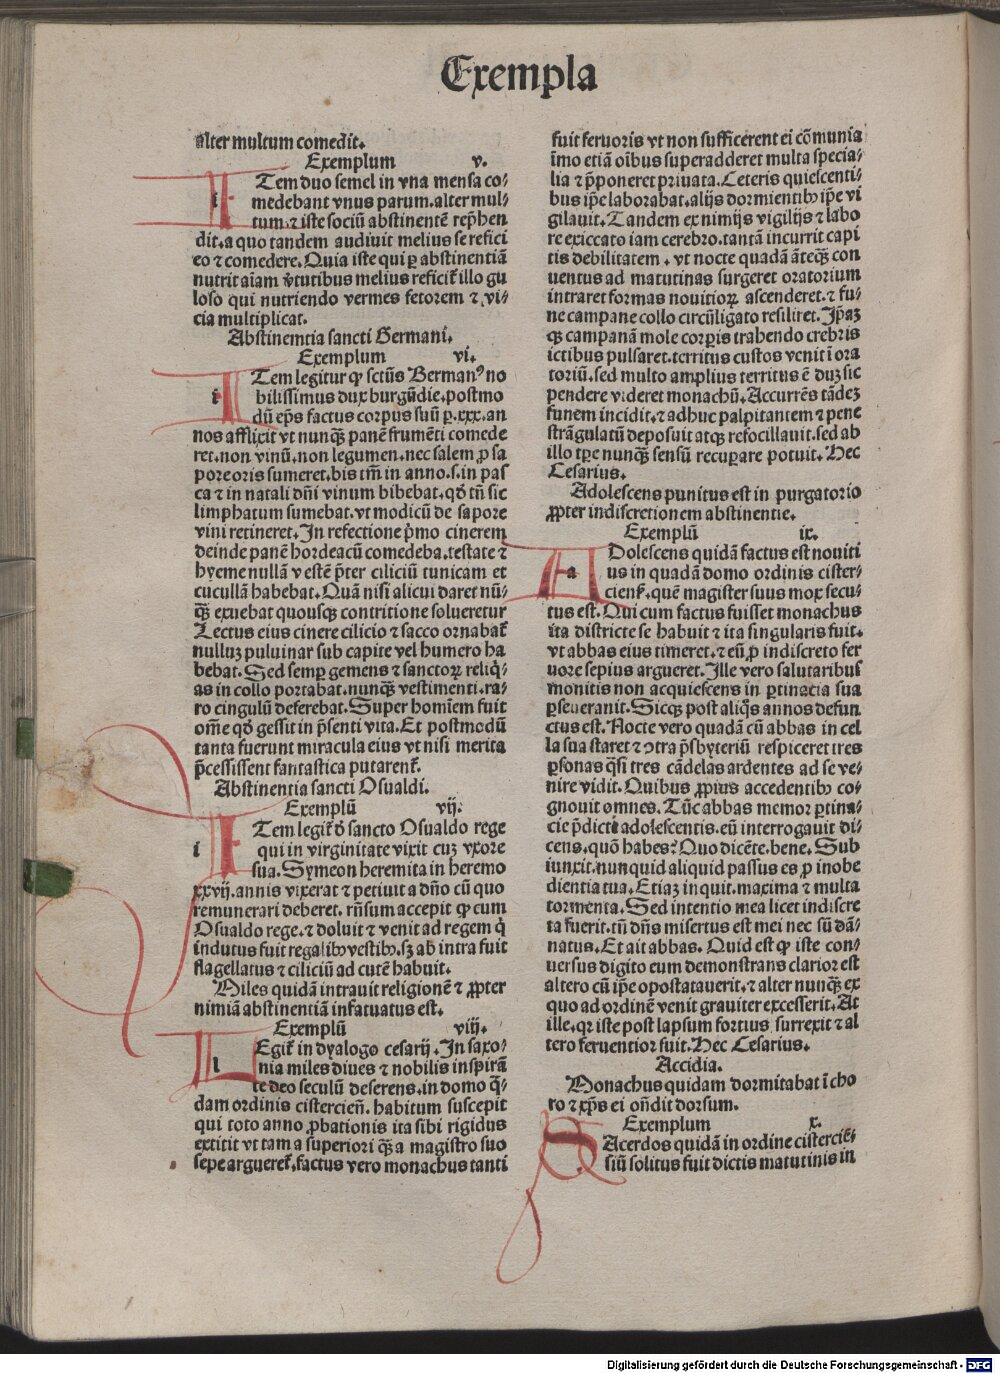 Exempla
alter multum comedit.
Exemplum v.
ITem duo semel in vna mensa co⸗
medebant vnus parum. alter mul⸗
tum. ⁊ iste sociū abstinentē rep̄hen
dit. a quo tandem audiuit melius se refici
eo ⁊ comedere. Quia iste qui ꝑ abstinentiā
nutrit aīam v̄tutibus melius reficit̄ illo gu
loso qui nutriendo vermes fetorem ⁊ vi⸗
cia multiplicat.
Abstinemtia sancti Germani.
Exemplum vi.
ITem legitur ꝙ sctūs Germanꝰ no
bilissimus dux burgūdie. postmo
dū ep̄s factus corpus suū ꝑ .xxx. an
nos afflixit vt nunq̄ꝫ panē frumēti comede
ret. non vinū. non legumen. nec salem ꝓ sa
pore oris sumeret. bis tm̄ in anno. s. in pas
ca ⁊ in natali dn̄i vinum bibebat. qd̄ tn̄ sic
limphatum sumebat. vt modicū de sapore
vini retineret. In refectione p̄mo cinerem
deinde panē hordeacū comedeba. testate ⁊
hyeme nullā vestē p̄ter ciliciū tunicam et
cucullā habebat. Quā nisi alicui daret nū⸗
q̄ꝫ exuebat quousqꝫ contritione solueretur
Lectus eius cinere cilicio ⁊ sacco ornabat̄
nulluꝫ puluinar sub capite vel humero ha
bebat. Sed semꝑ gemens ⁊ sanctoꝝ reliq̄⸗
as in collo portabat. nunq̄ꝫ vestimenti. ra⸗
ro cingulū deferebat. Super homīem fuit
om̄e qd̄ gessit in p̄senti vita. Et postmodū
tanta fuerunt miracula eius vt nisi merita
p̄cessissent fantastica putarent̄.
Abstinentia sancti Osualdi.
Exemplū vij.
ITem legit̄ d̄ sancto Osualdo rege
qui in virginitate vixit cuꝫ vxore
sua. Symeon heremita in heremo
xxvij. annis vixerat ⁊ petiuit a dn̄o cū quo
remunerari deberet. rn̄sum accepit ꝙ cum
Osualdo rege. ⁊ doluit ⁊ venit ad regem q̄
indutus fuit regalibꝰ vestibꝰ. sꝫ ab intra fuit
flagellatus ⁊ ciliciū ad cutē habuit.
Miles quidā intrauit religionē ⁊ ꝓpter
nimiā abstinentiā infatuatus est.
Exemplū viij.
LEgit̄ in dyalogo cesarij. In saxo⸗
nia miles diues ⁊ nobilis inspirā
te deo seculū deserens. in domo q̄⸗
dam ordinis cistercien̄. habitum suscepit
qui toto anno ꝓbationis ita sibi rigidus
extitit vt tam a superiori q̄ꝫ a magistro suo
sepe argueret̄. factus vero monachus tanti
fuit feruoris vt non sufficerent ei cōmunia
īmo etiā oībus superadderet multa specia⸗
lia ⁊ p̄poneret priuata. Ceteris quiescenti⸗
bus ip̄e laborabat. alijs dormientibꝰ ip̄e vi
gilauit. Tandem ex nimijs vigilijs ⁊ labo
re exiccato iam cerebro. tantā incurrit capi
tis debilitatem . vt nocte quadā āteq̄ꝫ con
uentus ad matutinas surgeret oratorium
intraret formas nouitioꝝ ascenderet. ⁊ fu⸗
ne campane collo circūligato resiliret. Ip̄aꝫ
qꝫ campanā mole corꝑis trahendo crebris
ictibus pulsaret. territus custos venit ī ora
toriū. sed multo amplius territus ē duꝫ sic
pendere videret monachū. Accurrēs tādeꝫ
funem incidit. ⁊ adhuc palpitantem ⁊ pene
strāgulatū deposuit atqꝫ refocillauit. sed ab
illo tꝑe nunq̄ꝫ sensū recuꝑare potuit. Hec
Cesarius.
Adolescens punitus est in purgatorio
ꝓpter indiscretionem abstinentie.
Exemplū ix.
ADolescens quidā factus est nouiti
us in quadā domo ordinis cister⸗
cien̄. quē magister suus mox secu⸗
tus est. Qui cum factus fuisset monachus
ita districte se habuit ⁊ ita singularis fuit.
vt abbas eius timeret. ⁊ eū ꝓ indiscreto fer
uore sepius argueret. Ille vero salutaribus
monitis non acquiescens in ꝑtinacia sua
ꝑseueranit. Sicqꝫ post aliq̄s annos defun
ctus est. Nocte vero quadā cū abbas in cel
la sua staret ⁊ ↄtra p̄sbyteriū respiceret tres
ꝑsonas q̄si tres cādelas ardentes ad se ve⸗
nire vidit. Quibus ꝓpius accedentibꝰ co⸗
gnouit omnes. Tūc abbas memor ꝑtina⸗
cie p̄dicti adolescentis. eū interrogauit di⸗
cens. quō habes? Quo dicēte. bene. Sub
iunxit. nunquid aliquid passus es ꝓ inobe
dientia tua. Etiaꝫ inquit. maxima ⁊ multa
tormenta. Sed intentio mea licet indiscre
ta fuerit. tn̄ dn̄s misertus est mei nec sū dā⸗
natus. Et ait abbas. Quid est ꝙ iste con⸗
uersus digito eum demonstrans clarior est
altero cū ip̄e opostatauerit. ⁊ alter nunq̄ꝫ ex
quo ad ordinē venit grauiter excesserit. At
ille. qr iste post lapsum fortius surrexit ⁊ al
tero feruentior fuit. Hec Cesarius.
Accidia.
Monachus quidam dormitabat ī cho
ro ⁊ xp̄s ei on̄dit dorsum.
Exemplum x.
SAcerdos quidā in ordine cisterciē⸗
siū solitus fuit dictis matutinis in
Digitalisierung gefördert durch die Deutsche Forschungsgemeinschaft - DFG